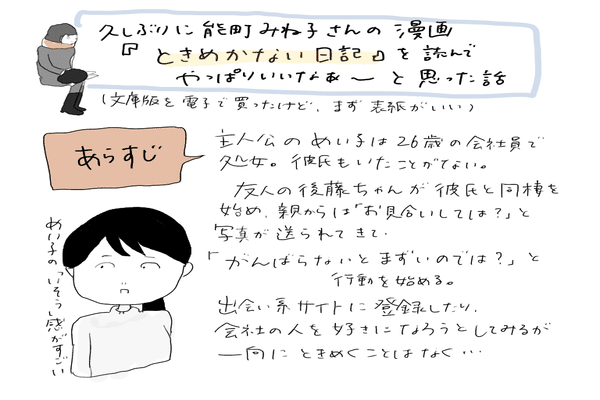 久しぶりに能町みね子さんの漫画
『ときめかない日記』を読んで
やっぱりいいなぁ〜と思った話
(文庫版を電子で買ったけど、まず表紙がいい)
あらすじ
主人公のめい子は26歳の会社員で
処女。彼氏もいたことがない。
友人の後藤ちゃんが彼氏と同棲を
始め、親からは「お見合いしては?」と
写真が送られてきて
「がんばらないとまずいのでは?」と
行動を始める。
出会い系サイトに登録したり、
会社の人を好きになろうとしてみるが
一向にときめくことはなく…
めい子の"いそうい感がすごい